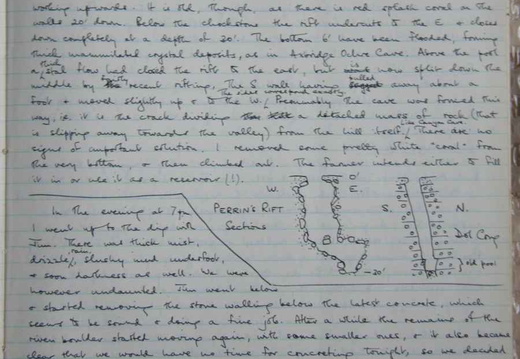 working upwards. It is old, though, as there is red splash coral on the
walls 20' down. Below the chockstone the rift undercuts to the E & closes
down completely at a depth of 20'. The bottom 6' have been flooded, forming
thick mammilated crystal deposits, as in Axbridge Ochre Cave. Above the pool
a thick stal flow had closed the rift to the east, but is now split down the
middle by fairly recent rifting, the S wall having pulled away about a
foot & moved slightly up & to the W. / Presumably the cave was formed this
The sides correspond exactly.
way, i.e. it is the crack dividing a detached mass of rock (that
is slipping away towards the valley) from the hill itself / There are no
signs of important solution. I removed some pretty white "coral" from
the very bottom, & then climbed out. The farmer intends either to fill
it in or use it as a reservoir (!).
In the evening at 7pm
I went up to the dig with
Jim. There was thick mist,
drizzle/rain, slushy mud underfoot,
& soon darkness as well. We were
however undaunted. Jim went below
& started removing the stone walling below the latest concrete, which
seems to be sound & doing a fine job. After a while the remains of the
riven boulder started moving again, with some smaller ones, & it also became
clear that we would have no time for concreting tonight, so we decided
PERRIN'S RIFT
Sections
W.
E.
0'
B
-20'
S.
N.
Dol Cong
old pool